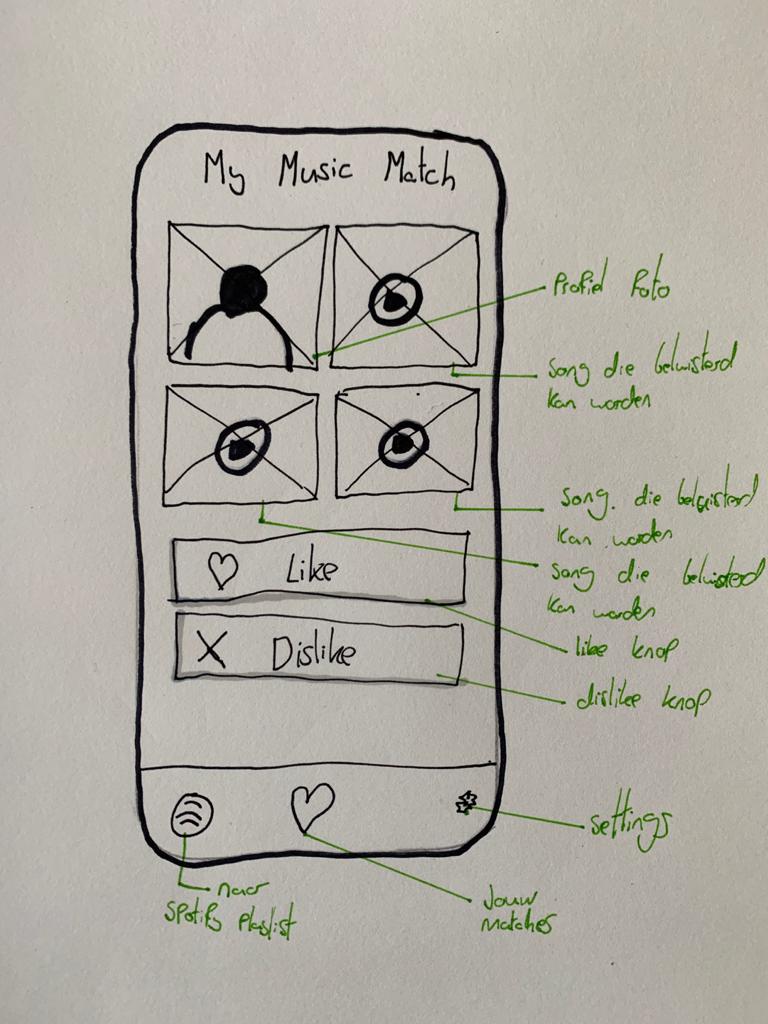 My Music Match
Profiel foto
song die beluisterd
kan worden
song. die beluisterd
kan worden
song die beluisterd
kan worden
Like
like knop
Dislike
dislike knop
settings
naar
Spotify Playlist
Jouw
matches